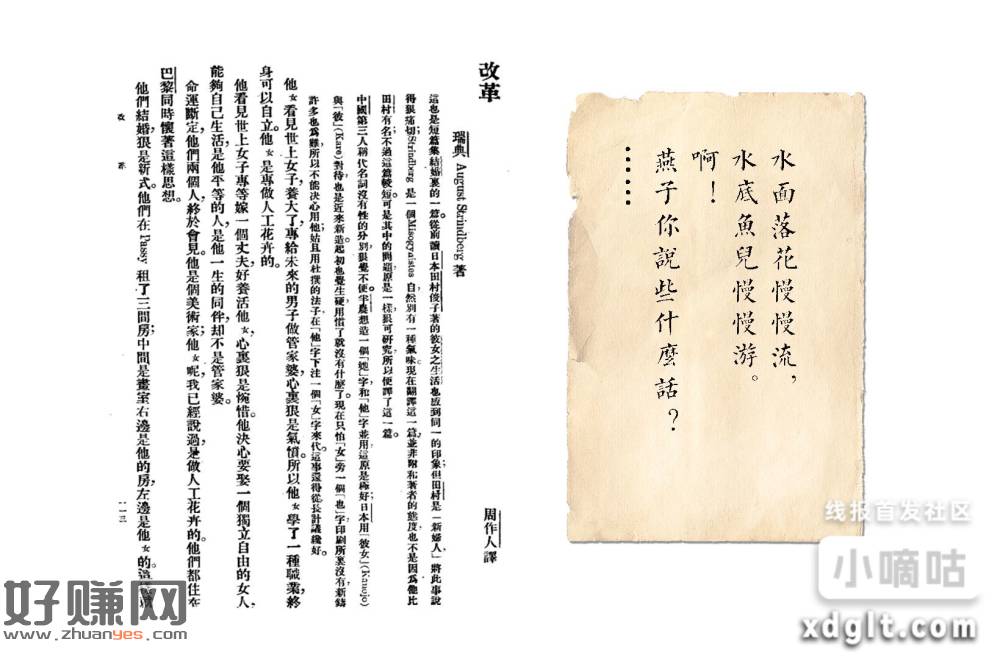 改革
瑞典 August Strindberg 著
周作人譯
這也是短篇集結婚裏的一篇。從前讀日本田村俊子著的彼女之生活也感到同一的印象但田村是「新婦人」將此事說
得很痛切Strindberg 是一個Misogynistes 自然別有一種氣味現在翻譯這一篇,並非附和著者的態度也不是因為他比
田村有名不過這篇較短可是其中的問題原是一樣,狠可研究所以便譯了這一篇。
中國第三人稱代名詞沒有性的分別狠覺不便。半農想造一個「她」字和「他」字並用這原是極好日本用「彼女」(Kanojo)
與「彼」(Kare)對待也是近來新造起初也覺生硬用慣了就沒有什麼了。現在只怕「女」旁一個「也」字印刷所裏沒有新鑄
許多也為難所以不能決心用他姑且用杜撰的法子在「他」字下注一個「女」字來代。這事還得從長計議纔好。
他女看見世上女子養大了,專給未來的男子做管家婆,心裏狠是氣憤。所以他女學了一種職業,終
身可以自立。他女是專做人工花卉的。
他看見世上女子專等嫁一個丈夫好養活他女,心裏狠是惋惜。他決心要娶一個獨立自由的女人,
能夠自己生活,是他平等的人,是他一生的同伴,却不是管家婆。
命運斷定他們兩個人,終於會見。他是個美術家,他女呢,我已經說過,是做人工花卉的。他們都住在
巴黎同時懷著這樣思想。
他們結婚狠是新式。他們在 Passy 租了三間房;中間是畫室,右邊是他的房,左邊是他女的。這樣就
改革
一一三
水面落花慢慢流,
水底魚兒慢慢游。
啊!
燕子你說些什麼話?
……
线报首发社区
小嘀咕
xdglt.com
好赚网
www.zhuanyes.com